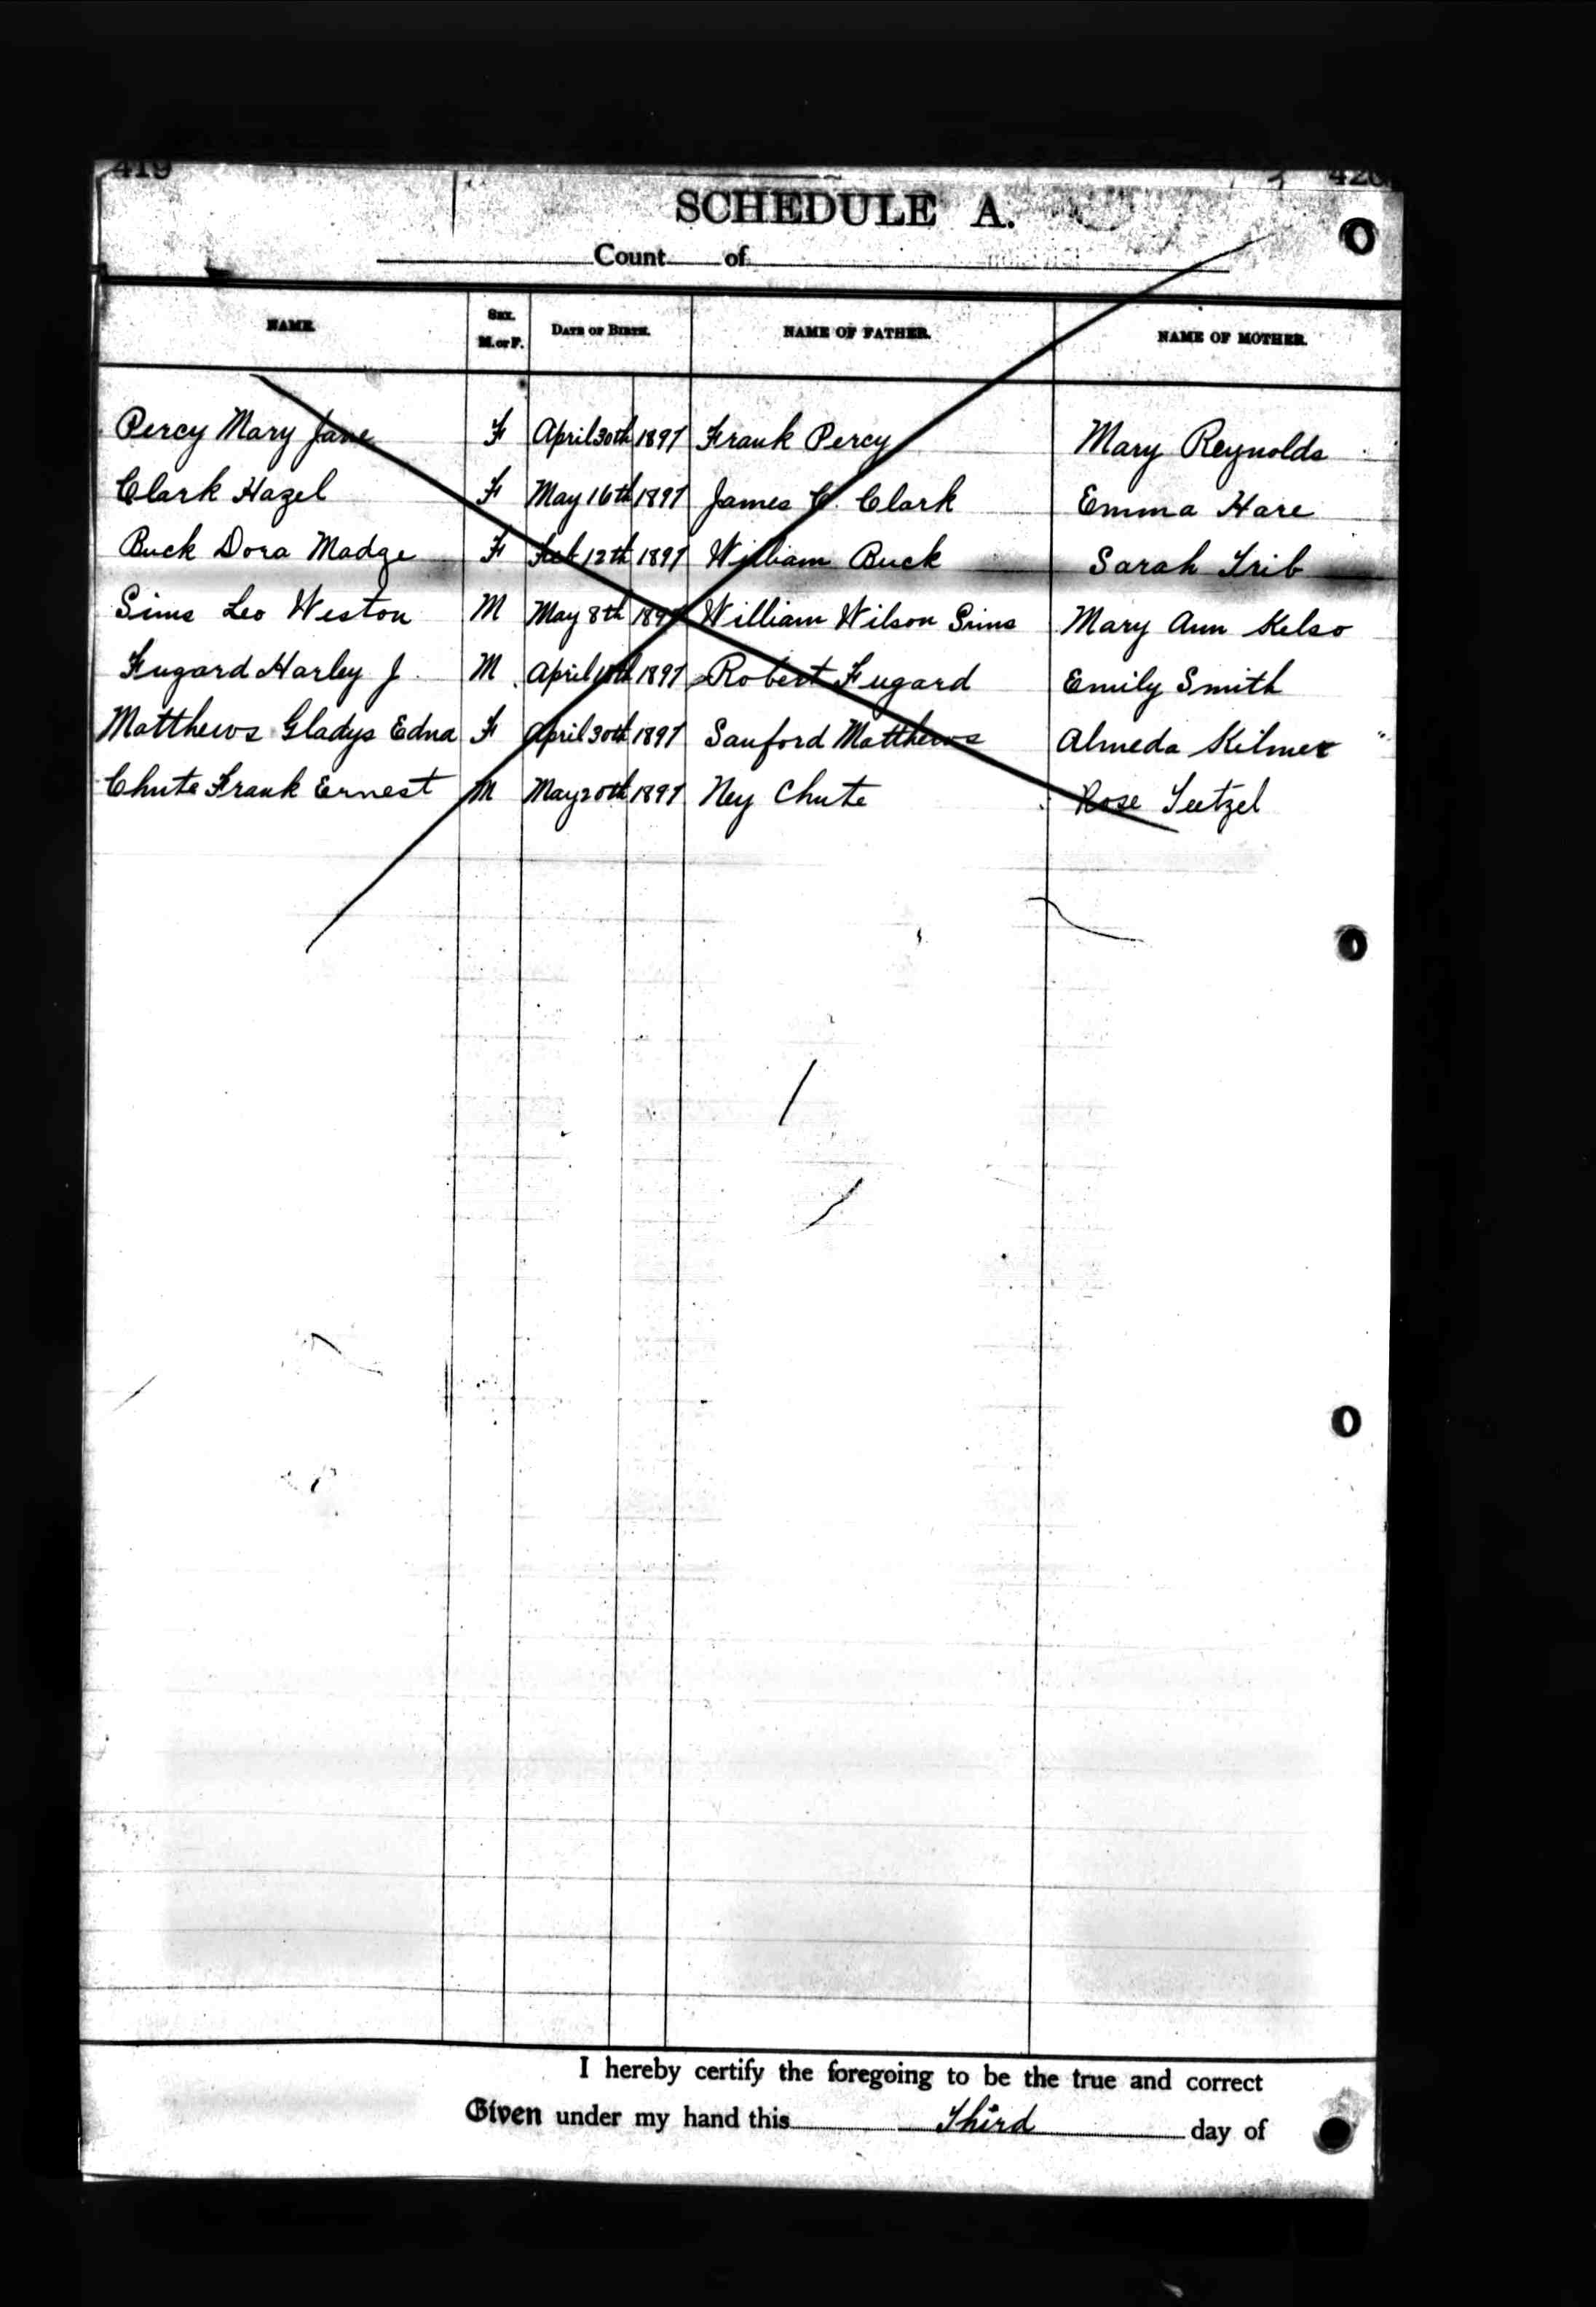 419 420
SCHEDULE A.
Count of
NAME. SEX. M. or F. DATE OF BIRTH. NAME OF FATHER. NAME OF MOTHER.
Percy Mary Jane F April 30th 1897 Frank Percy Mary Reynolds
Clark Hazel F May 16th 1897 James C. Clark Emma Hare
Buck Dora Madge F Feb 12th 1897 William Buck Sarah Trib
Sims Leo Weston M May 8th 1897 William Wilson Sims Mary Ann Kelso
Fugard Harley J. M April 1897 Robert Fugard Emily Smith
Matthews Gladys Edna F April 30th 1897 Sanford Matthews Almeda Kilmer
Chute Frank Ernest M May 20th 1897 Ney Chute Rose Teetzel
I hereby certify the foregoing to be the true and correct
Given under my hand this Third day of